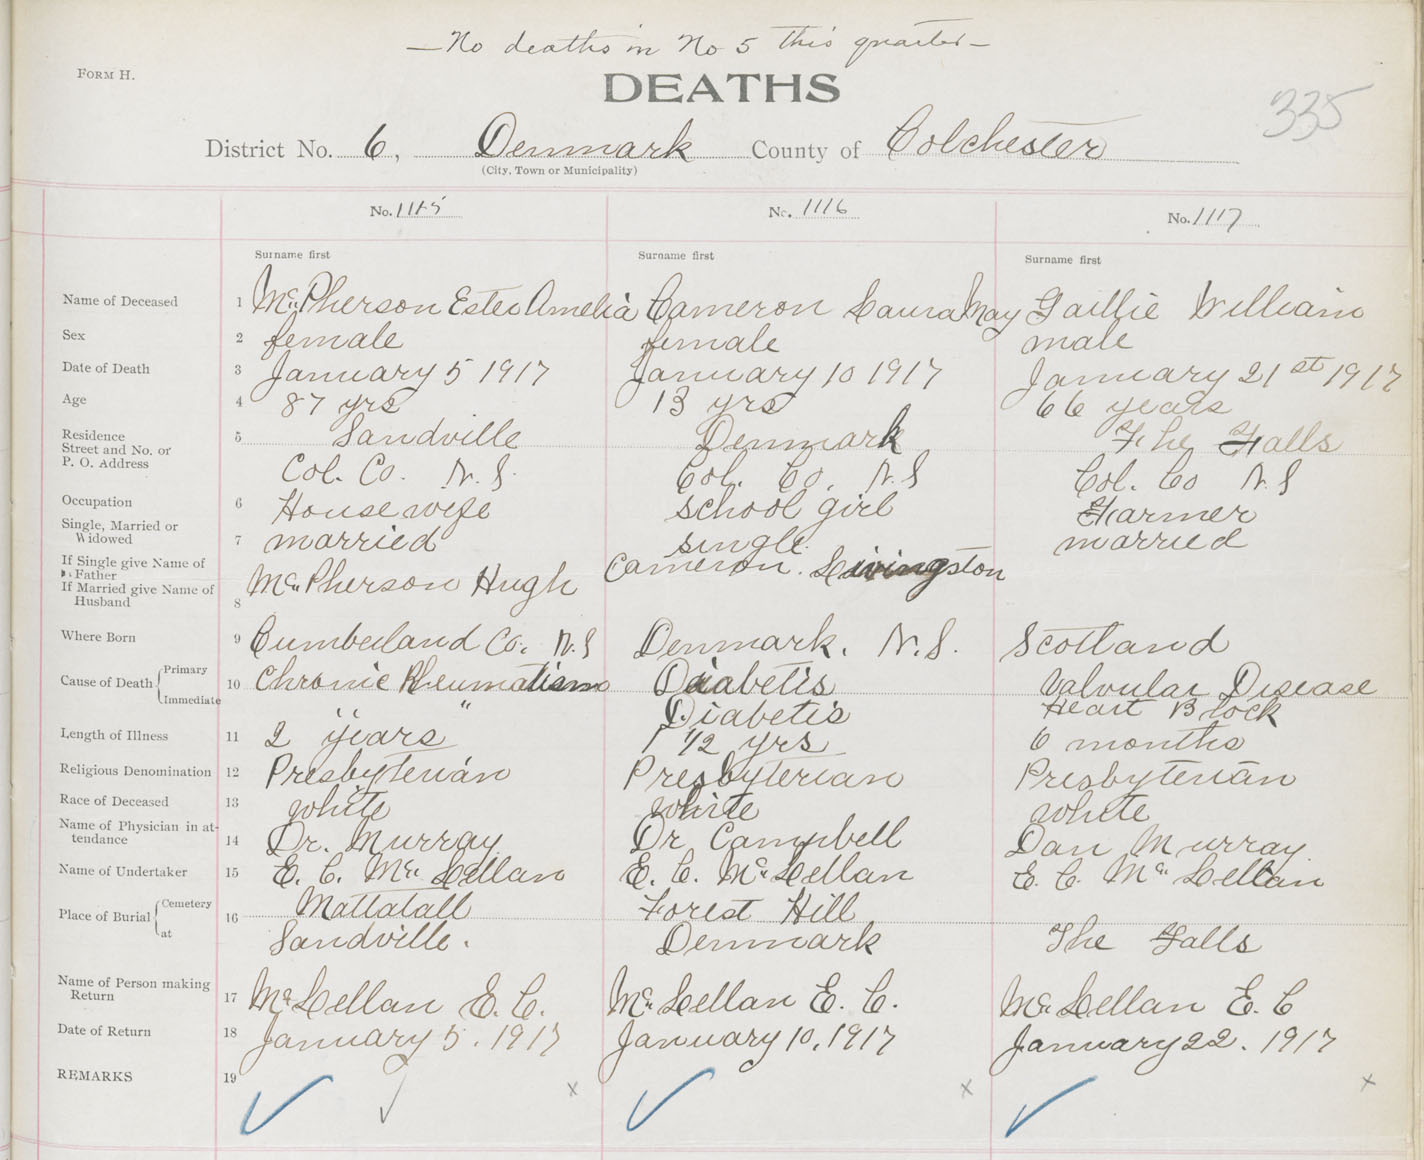 — No deaths in No 5 this quarter —
FORM H.
DEATHS
335
District No. 6, Denmark County of Colchester
(City, Town or Municipality)
No. 1115 No. 1116 No. 1117
Surname first Surname first Surname first
Name of Deceased 1 McPherson Ester Amelia Cameron Laura May Gaillie William
Sex 2 female female male
Date of Death 3 January 5 1917 January 10 1917 January 21st 1917
Age 4 87 yrs 13 yrs 66 years
Residence Street and No. or P. O. Address 5 Sandville Denmark The Falls
Col. Co. N.S. Col. Co. N.S Col. Co N.S
Occupation 6 Housewife school girl Farmer
Single, Married or Widowed 7 married single married
If Single give Name of Father
If Married give Name of Husband 8 McPherson Hugh Cameron. Livingston
Where Born 9 Cumberland Co. N.S Denmark. N.S. Scotland
Cause of Death Primary 10 Chronic Rheumatism Diabetis Valvular Disease
Immediate " " Diabetis Heart Block
Length of Illness 11 2 years 1 1/2 yrs 6 months
Religious Denomination 12 Presbyterian Presbyterian Presbyterian
Race of Deceased 13 white white white
Name of Physician in attendance 14 Dr. Murray Dr Campbell Dan Murray
Name of Undertaker 15 E. C. McLellan E. C. McLellan E. C. McLellan
Place of Burial Cemetery 16 Mattatall Forest Hill
at Sandville. Denmark The Falls
Name of Person making Return 17 McLellan E. C. McLellan E. C. McLellan E. C
Date of Return 18 January 5. 1917 January 10, 1917 January 22. 1917
REMARKS 19 x x x